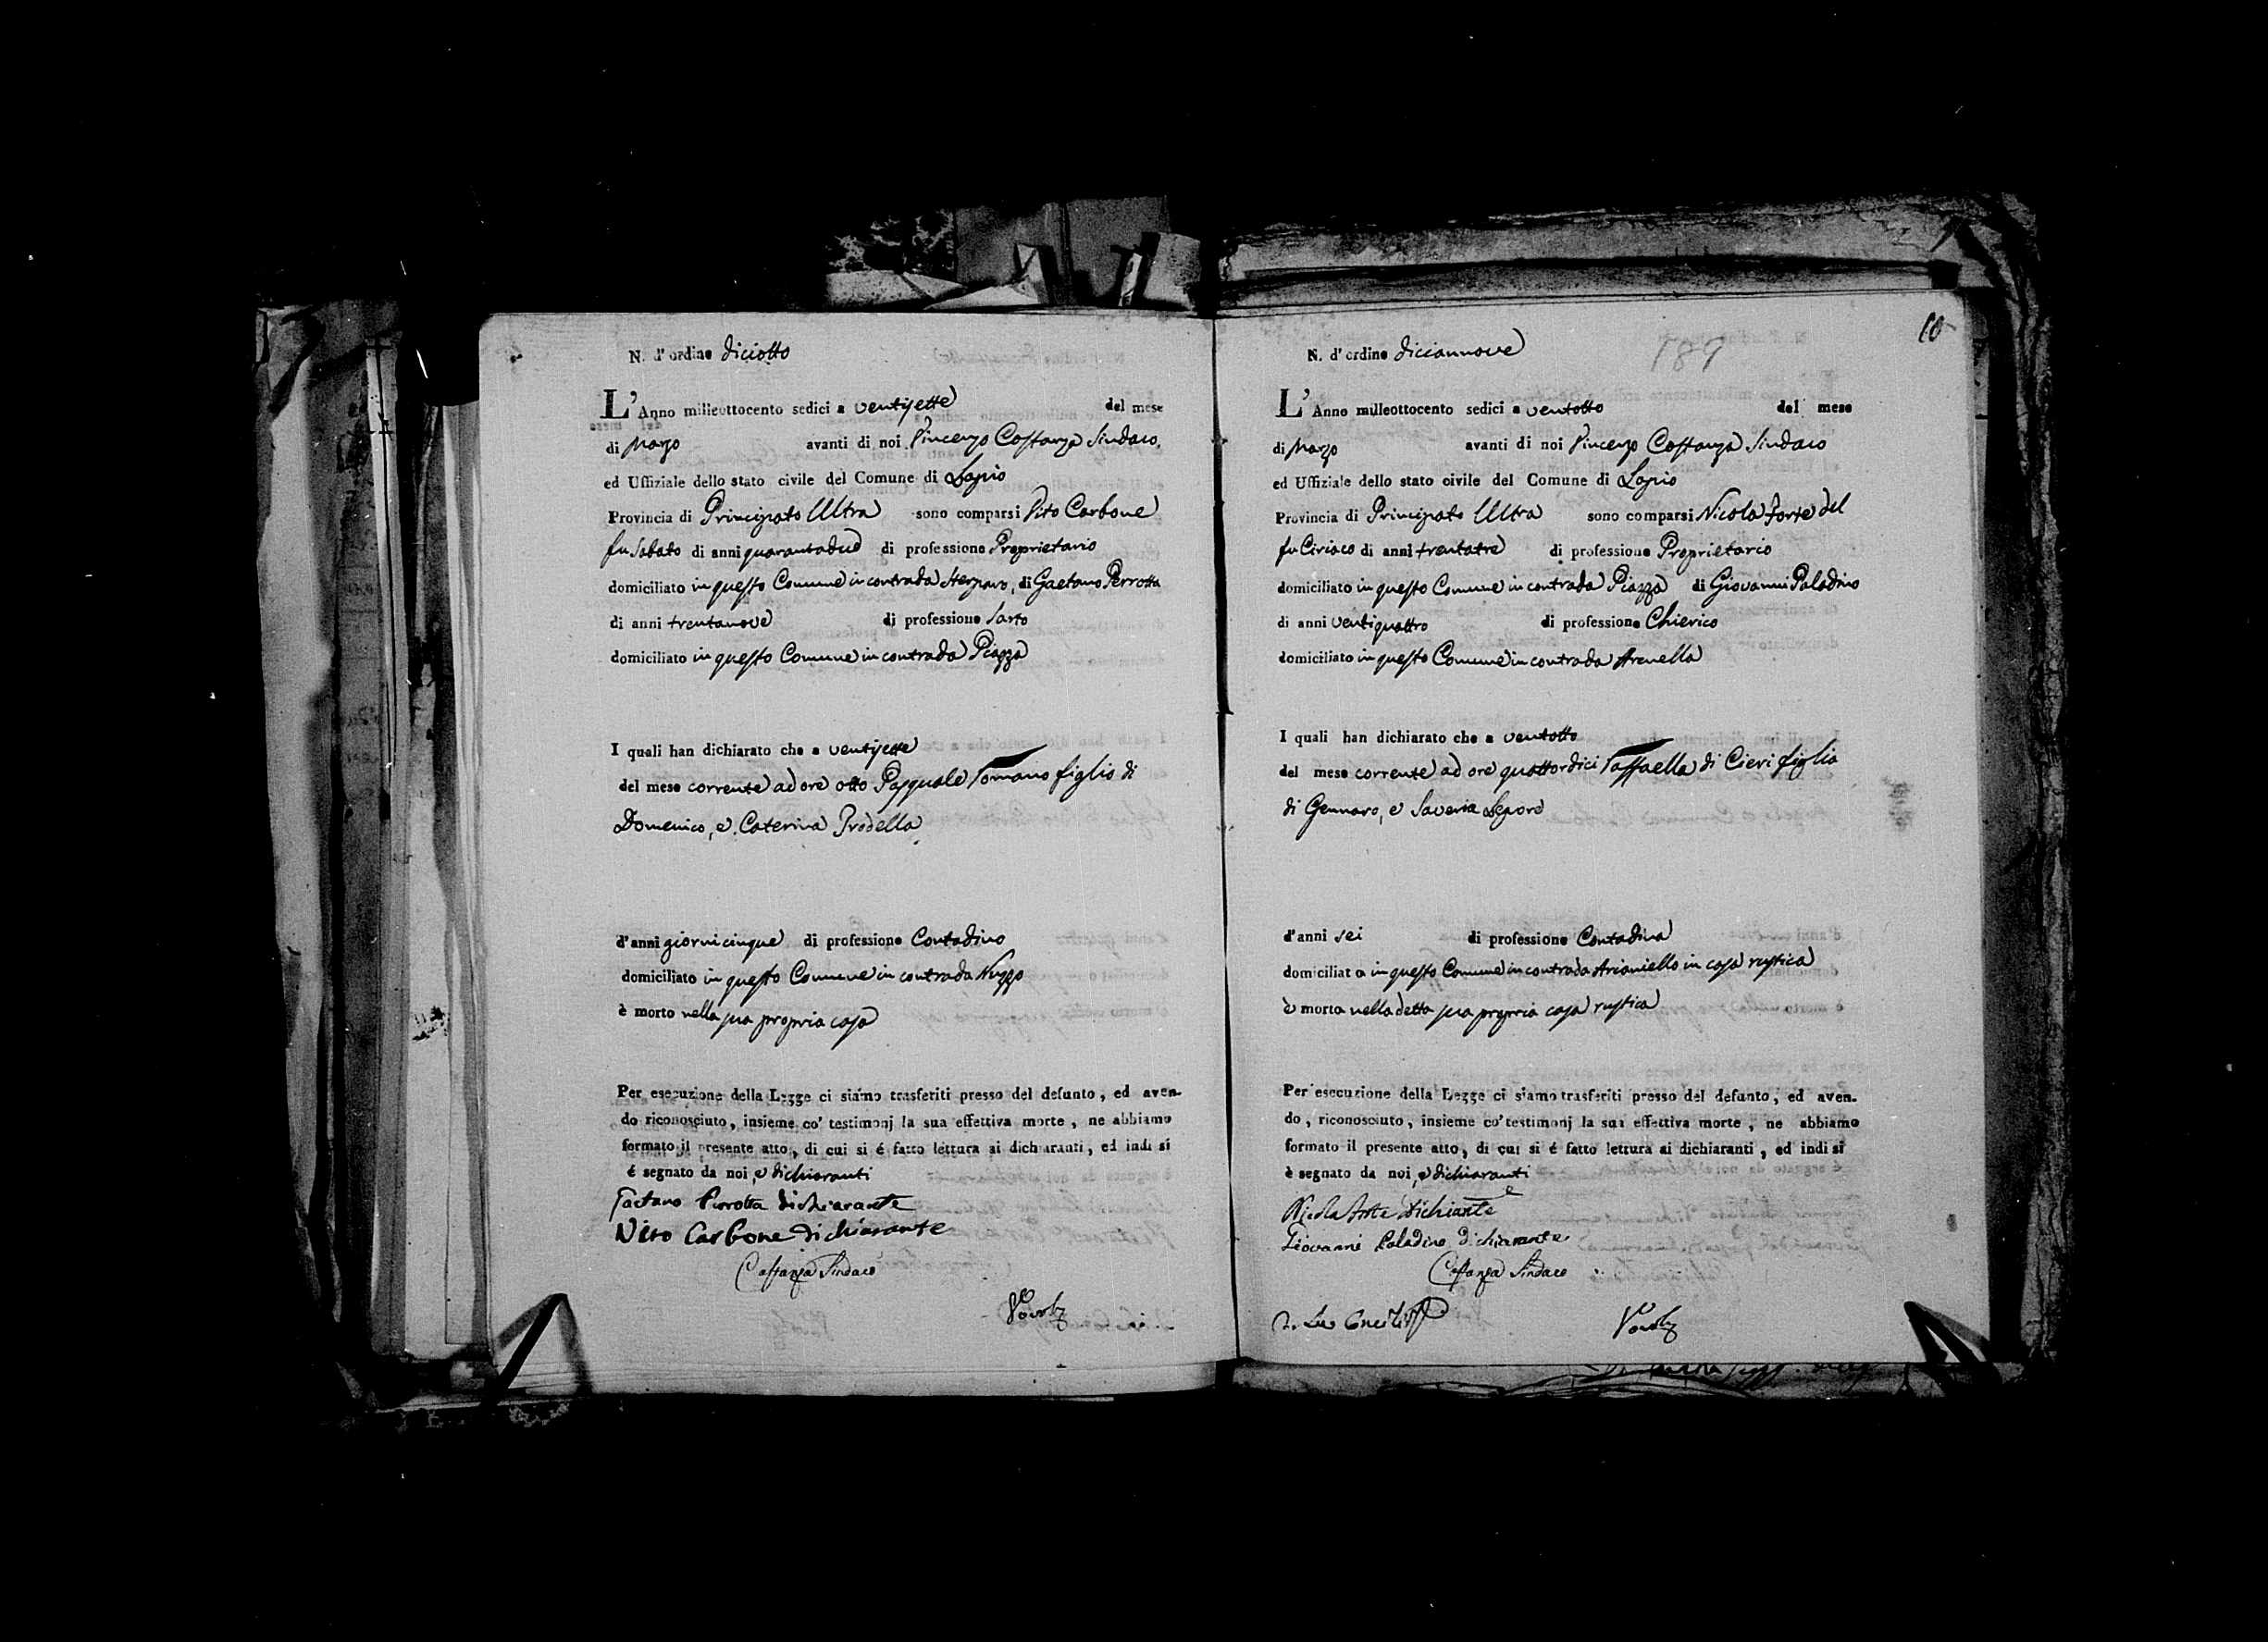 N. d'ordine diciotto
L'Anno milleottocento sedici a ventisette del mese
di Marzo avanti di noi Vincenzo Costanza Sindaco,
ed Uffiziale dello stato civile del Comune di Lapio
Provincia di Principato Ultra sono comparsi Vito Carbone
fu Sabato di anni quarantadue di professione Proprietario
domiciliato in questo Comune in contrada , di Gaetano Perrotta
di anni trentanove di professione Sarto
domiciliato in questo Comune in contrada Piazza
I quali han dichiarato che a ventisette
del mese corrente ad ore otto Pasquale Romano figlio di
Domenico, e Caterina Prodella
d'anni giorni cinque di professione Contadino
domiciliato in questo Comune in contrada Nuzzo
è morto nella sua propria casa
Per esecuzione della Legge ci siamo trasferiti presso del defunto, ed aven-
do riconosciuto, insieme co' testimonj la sua effettiva morte, ne abbiamo
formato il presente atto, di cui si é fatto lettura ai dichiaranti, ed indi si
é segnato da noi, e dichiaranti
Gaetano Perrotta dichiarante
Vito Carbone dichiarante
Costanza Sindaco
10
189
N. d'ordine diciannove
L'Anno milleottocento sedici a ventotto del mese
di Marzo avanti di noi Vincenzo Costanza Sindaco
ed Uffiziale dello stato civile del Comune di Lapio
Provincia di Principato Ultra sono comparsi Nicola Forte del
fu Ciriaco di anni trentatre di professione Proprietario
domiciliato in questo Comune in contrada Piazza di Giovanni Paladino
di anni ventiquattro di professione Chierico
domiciliato in questo Comune in contrada Arenella
I quali han dichiarato che a ventotto
del mese corrente ad ore quattordici Raffaella di Cieri figlia
di Gennaro, e Saveria Lepore
d'anni sei di professione Contadina
domiciliata in questo Comune in contrada Arianiello in casa rustica
è morta nella detta sua propria casa rustica
Per esecuzione della Legge ci siamo trasferiti presso del defunto, ed aven-
do, riconosciuto, insieme co' testimonj la sua effettiva morte, ne abbiamo
formato il presente atto, di cui si é fatto lettura ai dichiaranti, ed indi si
è segnato da noi, e dichiaranti
Nicola Forte Dichiarante
Giovanni Paladino Dichiarante
Costanza Sindaco